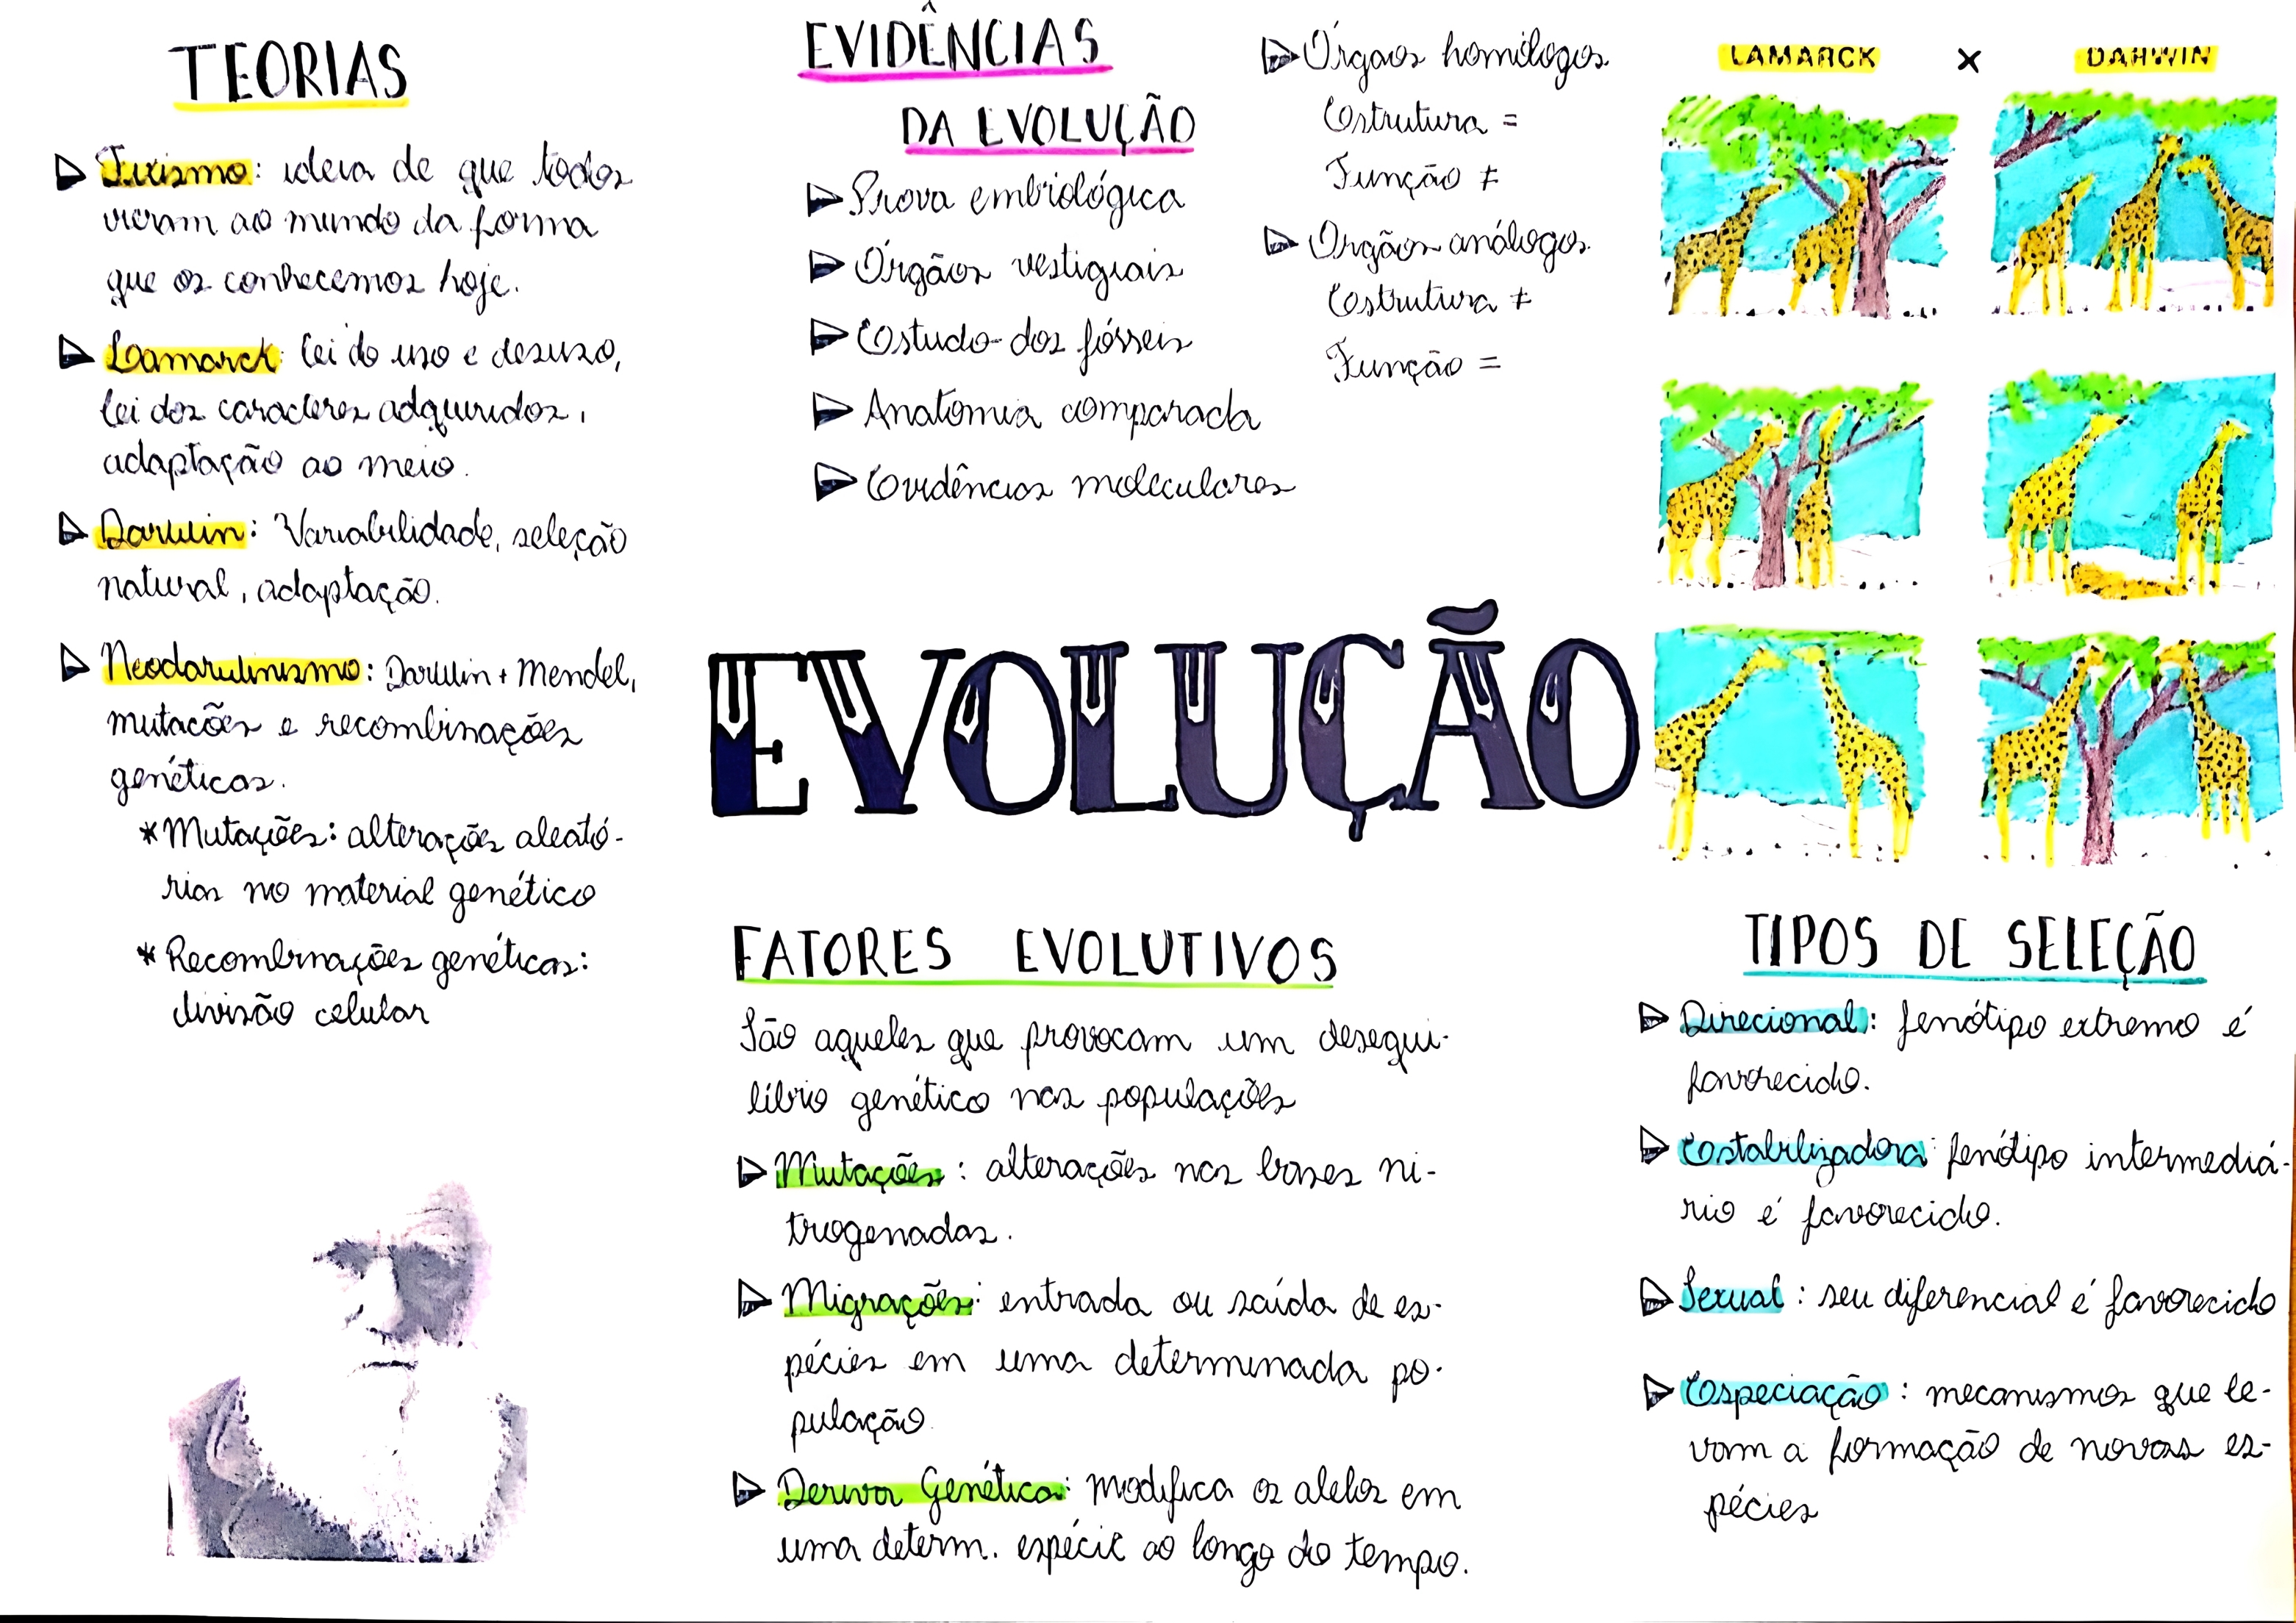 TEORIAS
Fixismo: ideia de que todos
vieram ao mundo da forma
que os conhecemos hoje.
Lamarck: lei do uso e desuso,
lei dos caracteres adquiridos,
adaptação ao meio.
Darwin: Variabilidade, seleção
natural, adaptação.
Neodarwinismo: Darwin + Mendel,
mutacões e recombinações
genéticas.
*Mutações: alterações aleató-
rias no material genético
*Recombinações genéticas:
divisão celular
EVIDÊNCIAS
DA EVOLUÇÃO
Prova embriológica
Órgãos vestigiais
Estudo dos fósseis
Anatomia comparada
Evidências moleculares
Órgaos homólogos
Estrutura =
Função ≠
Orgãos análogos
Estrutura ≠
Função =
LAMARCK X DARWIN
EVOLUÇÃO
FATORES EVOLUTIVOS
São aqueles que provocam um desequi-
líbrio genético nas populações
Mutações: alterações nas bases ni-
trogenadas.
Migrações: entrada ou saída de es-
pécies em uma determinada po-
pulação
Deriva Genética: modifica os alelos em
uma determ. espécie ao longo do tempo.
TIPOS DE SELEÇÃO
Direcional: fenótipo extremo é
favorecido.
Estabilizadora: fenótipo intermediá-
rio é favorecido.
Sexual: seu diferencial é favorecido
Especiação: mecanismos que le-
vam a formação de novas es-
pécies